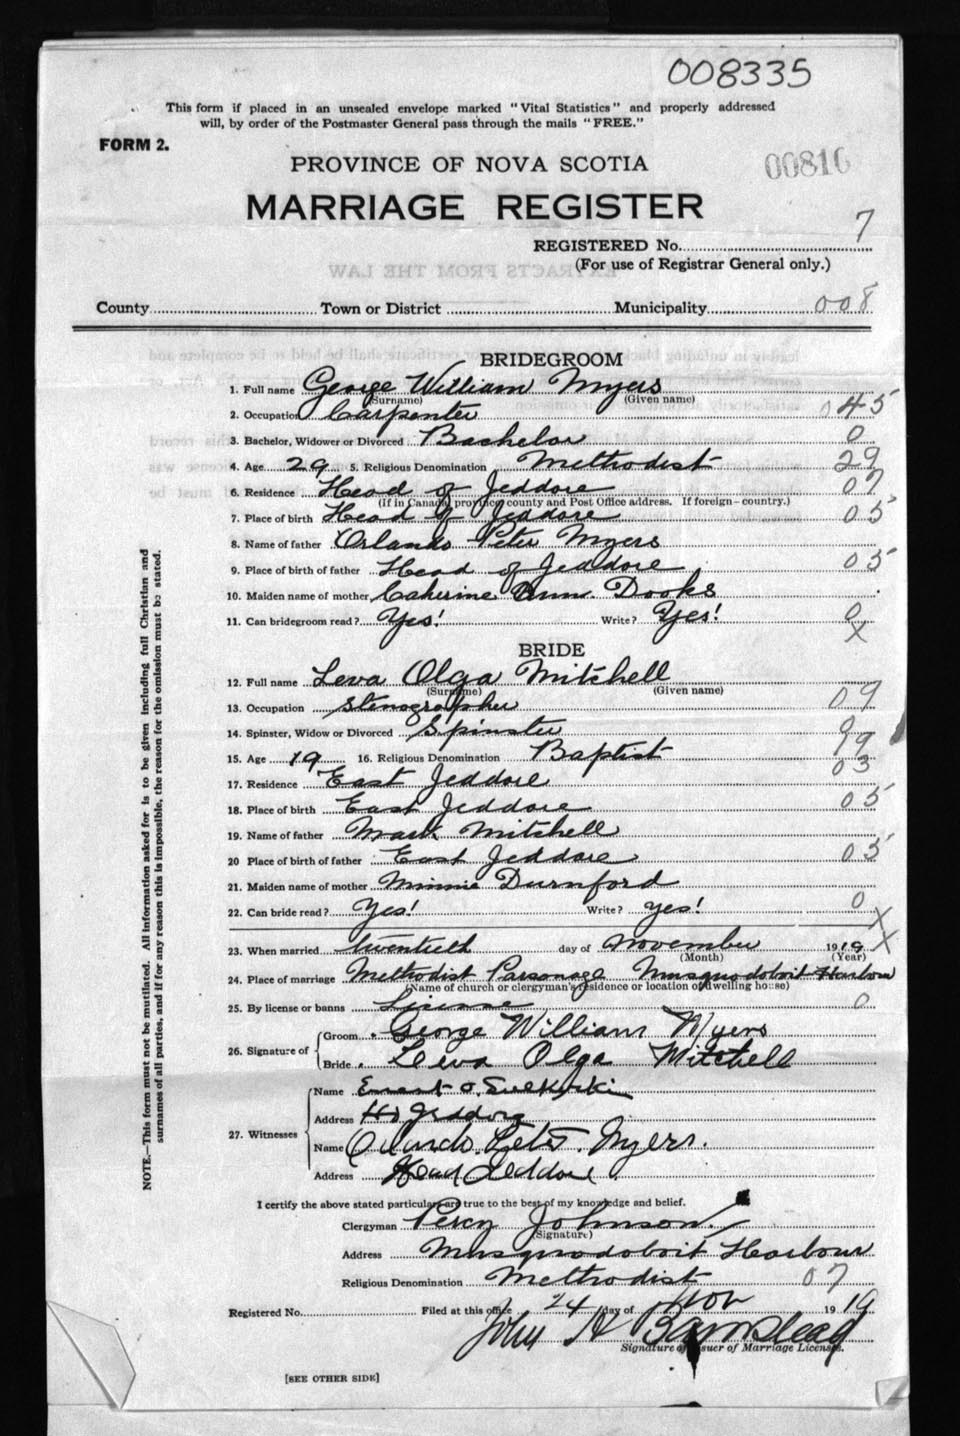 008335
This form if placed in an unsealed envelope marked "Vital Statistics" and properly addressed
will, by order of the Postmaster General pass through the mails "FREE."
FORM 2.
PROVINCE OF NOVA SCOTIA
00816
MARRIAGE REGISTER
REGISTERED No. 7
(For use of Registrar General only.)
EXTRACTS FROM THE LAW
County Town or District Municipality 008
BRIDEGROOM
1. Full name George William Myers
(Surname) (Given name)
2. Occupation Carpenter 045
3. Bachelor, Widower or Divorced Bachelor 0
4. Age 29 5. Religious Denomination Methodist 29
6. Residence Head of Jeddore 07
(If in Canada, province county and Post Office address. If foreign—country.)
7. Place of birth Head of Jeddore 05
8. Name of father Orlando Peter Myers
9. Place of birth of father Head of Jeddore 05
10. Maiden name of mother Catherine Ann Dooks
11. Can bridegroom read? Yes! Write? Yes! 0
X
BRIDE
12. Full name Leva Olga Mitchell
(Surname) (Given name)
13. Occupation Stenographer 09
14. Spinster, Widow or Divorced Spinster 0
15. Age 19 16. Religious Denomination Baptist 19
17. Residence East Jeddore 03
18. Place of birth East Jeddore 05
19. Name of father Mark Mitchell
20 Place of birth of father East Jeddore 05
21. Maiden name of mother Minnie Durnford
22. Can bride read? Yes! Write? yes! 0 X
23. When married twentieth day of November 1919 X
(Month) (Year)
24. Place of marriage Methodist Parsonage Musquodoboit Harbour
(Name of church or clergyman's residence or location of dwelling house)
25. By license or banns License 0
26. Signature of Groom George William Myers
Bride Leva Olga Mitchell
27. Witnesses
Name Ernest O.
Address Hd Jeddore
Name Orlando Peter Myers.
Address Head Jeddore
I certify the above stated particulars are true to the best of my knowledge and belief.
Clergyman Percy Johnson
(Signature)
Address Musquodoboit Harbour
Religious Denomination Methodist 07
Registered No. Filed at this office 24 day of Nov 1919
John H
Signature of Issuer of Marriage Licenses.
[SEE OTHER SIDE]
NOTE.—This form must not be mutilated. All information asked for is to be given including full Christian and
surnames of all parties, and if for any reason this is impossible, the reason for the omission must be stated.